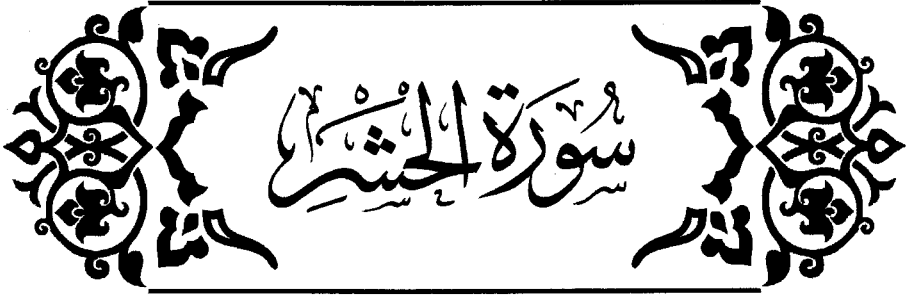 سُورَةُ الْحَشْرِ